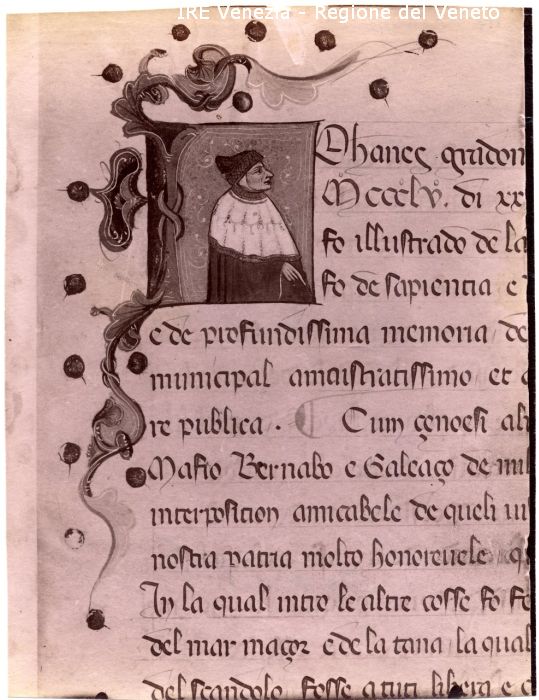 IRE Venezia - Regione del Veneto
Iohanes gradon
Mccclv. di xx
fo illustrado de la
fo de sapientia e
e de profundissima memoria de
municipal amaistratissimo et
re publica. Cum çenoesi
Mafio Bernabo e Galeaço de mil
interposition amicabele de queli
nostra patria molto honorevele
In la qual intro le altre cosse fo
del mar maçor e de la tana la qual
del scandolo fosse a tuti libera e